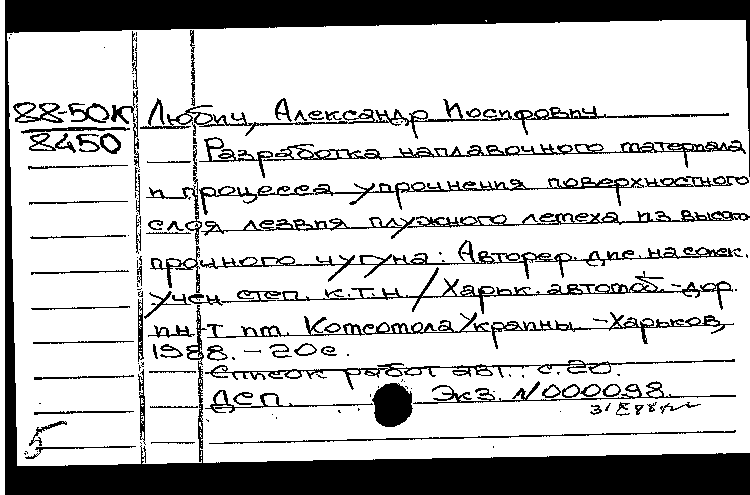 88-50К
8450
Любич, Александр Иосифович.
Разработка наплавочного материала
и процесса упрочнения поверхностного
слоя лезвия плужного лемеха из высоко
прочного чугуна: Автореф. дис. на соиск.
учен степ. к.т.н. / Харьк. автомоб.-дор.
ин-т им. Комсомола Украины. -Харьков,
1988. - 20с.
Список работ авт.: с.20.
ДСП. Экз. N000098.
5